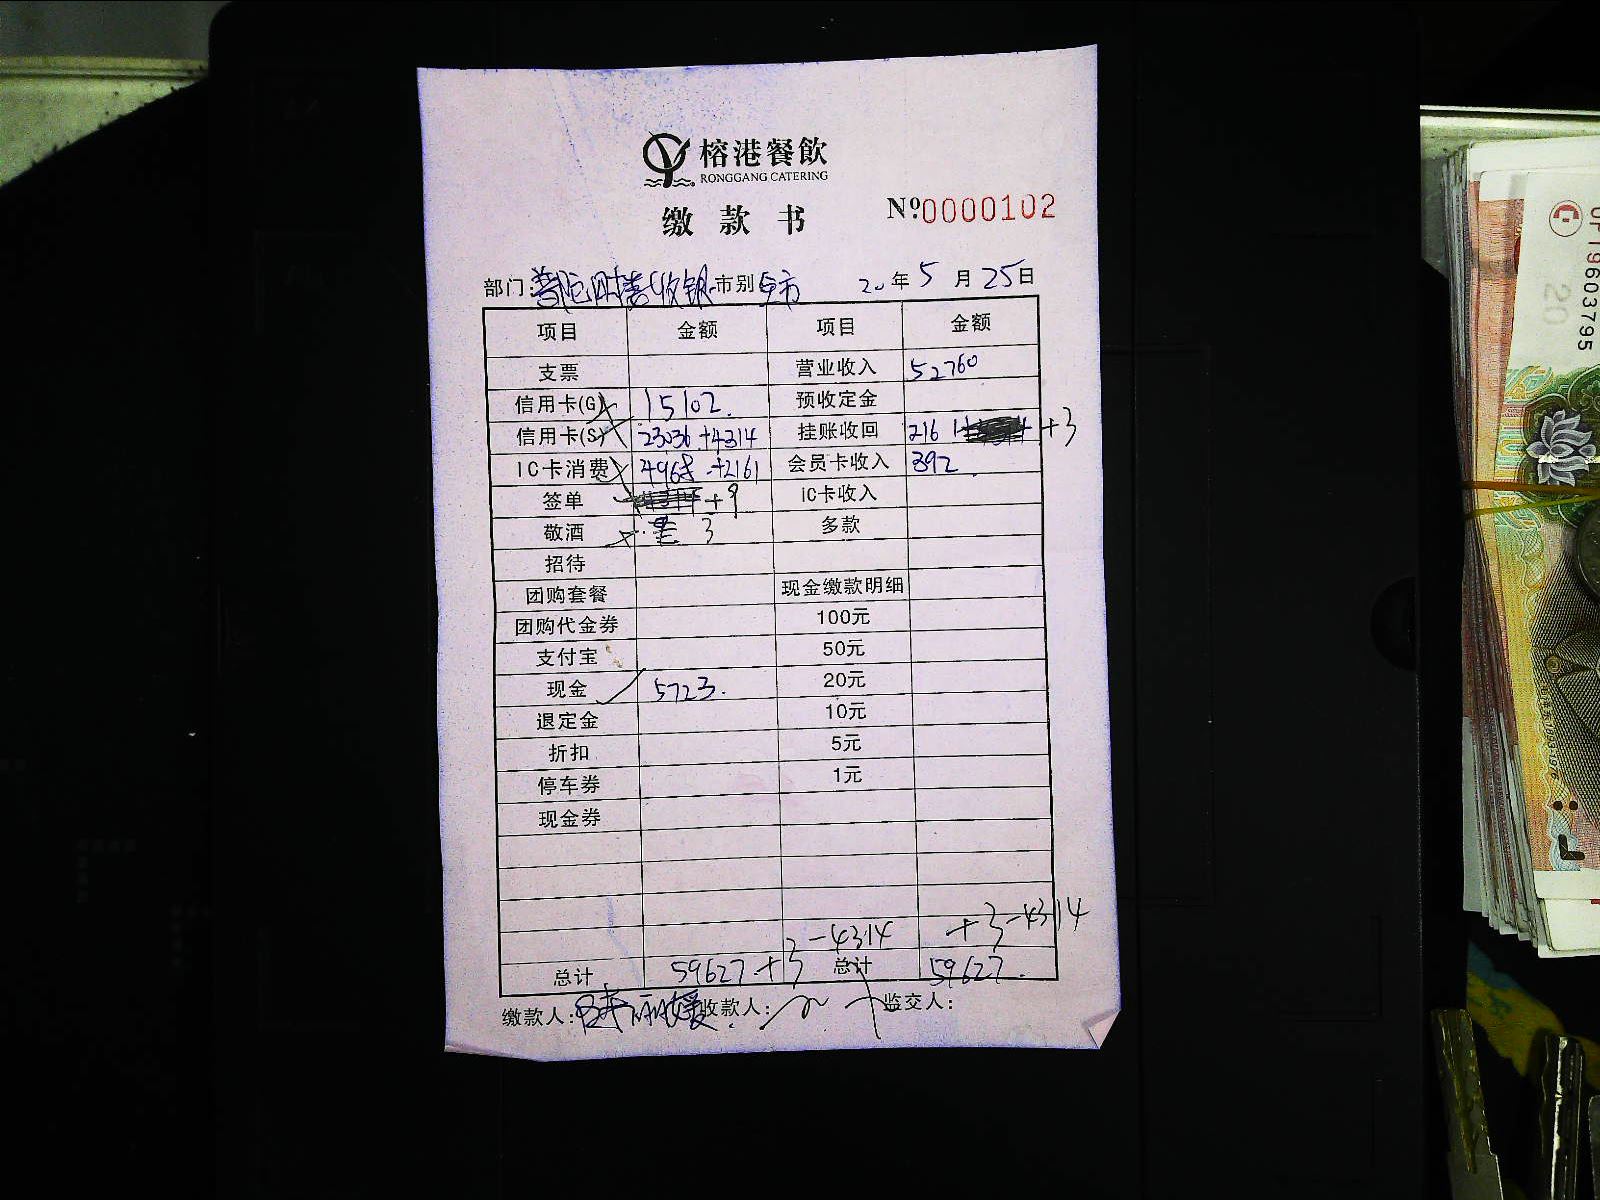 榕港餐飲
RONGGANG CATERING
缴款书 Nº0000102
部门: 市别 20年5月25日
项目 金额 项目 金额
支票 营业收入 52760
信用卡(G) 15102. 预收定金
信用卡(S) 23036 +4314 挂账收回 2161 +3
IC卡消费 4968 +2161 会员卡收入 392
签单 +9 IC卡收入
敬酒 3 多款
招待
团购套餐 现金缴款明细
团购代金券 100元
支付宝 50元
现金 5723. 20元
退定金 10元
折扣 5元
停车券 1元
现金券
-4314 +3-4314
总计 59627.+3 总计 59627.
缴款人: 收款人: 监交人:
UP19603795
20